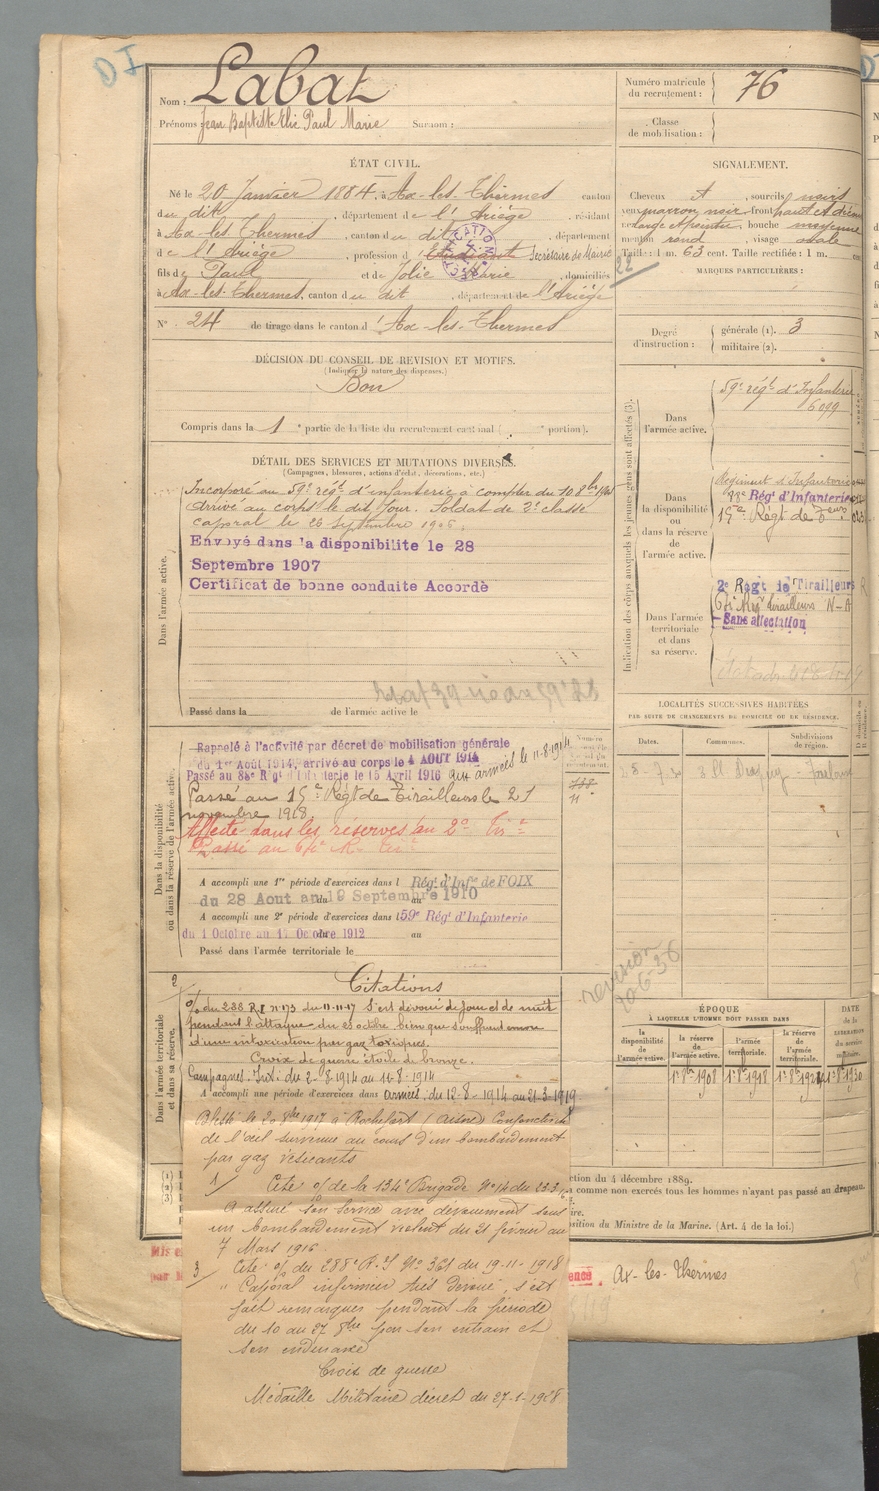 DI
Nom : Labat
Prénoms : Jean Baptiste Elie Paul Marie Surnom :
Numéro matricule du recrutement : 76
Classe de mobilisation :
ÉTAT CIVIL.
Né le 20 Janvier 1884, à Ax-les-Thermes canton
du dit, département de l'Ariège, résidant
à Ax-les-Thermes, canton du dit, département
de l'Ariège, profession d'Etudiant Secrétaire de Mairie
fils de Paul et de Jolie Marie, domiciliés
à Ax-les-Thermes, canton du dit, département de l'Ariège
N° 24 de tirage dans le canton d'Ax-les-Thermes
DÉCISION DU CONSEIL DE REVISION ET MOTIFS.
(Indiquer la nature des dispenses.)
Bon
Compris dans la 1e partie de la liste du recrutement cantonal ( e portion).
SIGNALEMENT.
Cheveux , sourcils noirs
yeux marron noir, front haut et
, bouche moyenne
menton rond, visage ovale
Taille : 1 m. 63 cent. Taille rectifiée : 1 m.
22
MARQUES PARTICULIÈRES :
Degré d'instruction : générale (1). 3
militaire (2).
DÉTAIL DES SERVICES ET MUTATIONS DIVERSES.
(Campagnes, blessures, actions d'éclat, décorations, etc.)
Dans l'armée active.
Incorporé au 59e régt d'infanterie à compter du 10 8bre
Arrivé au corps le dit jour. Soldat de 2e classe
caporal le 26 septembre 1906.
Envoyé dans la disponibilite le 28
Septembre 1907
Certificat de bonne conduite Accordé
Passé dans la de l'armée active le
Indication des corps auxquels les jeunes gens sont affectés (3).
Dans l'armée active.
59e régt d'Infanterie
6099
Dans la disponibilité ou dans la réserve de l'armée active.
Régiment d'Infanterie
88e Régt d'Infanterie
15e Régt de
Dans l'armée territoriale et dans sa réserve.
2e Régt de Tirailleurs
Tirailleurs N-A
Sans affectation
LOCALITÉS SUCCESSIVES HABITÉES
PAR SUITE DE CHANGEMENTS DE DOMICILE OU DE RÉSIDENCE.
Dates. Communes. Subdivisions de région.
Toulon
Dans la disponibilité ou dans la réserve de l'armée active.
Rappelé à l'activité par décret de mobilisation générale
du 1er Août 1914, arrivé au corps le 4 AOUT 1914
aux armées le 11-8-1914
Passé au 88e Régt d'Infanterie le 15 Avril 1916
Passé au 15e Régt de Tirailleurs le 21
novembre 1918
Affecté dans les réserves au 2e
Passé au
A accompli une 1re période d'exercices dans l Régt d'Infie de FOIX
du 28 Aout au 19 Septembre 1910
A accompli une 2e période d'exercices dans l 59e Régt d'Infanterie
du 1 Octobre au 17 Octobre 1912
Passé dans l'armée territoriale le
Dans l'armée territoriale et dans sa réserve.
2
Citations
o/ du 288 R.I n° 173 du 11-11-17 s'est dévoué de jour et de nuit
pendant l'attaque du 23 octobre bien que souffrant encore
d'une intoxication par gaz toxiques.
Croix de guerre étoile de bronze.
Campagnes. Int. du 2-8-1914 au 11-8-1914
A accompli une période d'exercices dans armées. du 12-8-1914 au 21-3-1919
revision
20-6-36
ÉPOQUE
À LAQUELLE L'HOMME DOIT PASSER DANS
la disponibilité de l'armée active. la réserve de l'armée active. l'armée territoriale. la réserve de l'armée territoriale.
DATE de la LIBÉRATION du service militaire.
1er 8bre 1908 1er 8bre 1918
Blessé le 20 8bre 1917 à Rochefort (Aisne) Conjonctivite
de l'œil survenue au cours d'un bombardement
par gaz vésicants
1/ Cité o/ de la 134e Brigade N° 14 du 23.3
A assuré son service avec dévouement sous
un bombardement violent du 21 février au
7 Mars 1916.
3/ Cité o/ du 288e R.I N° 361 du 19-11-1918
" Caporal infirmier très dévoué, s'est
fait remarquer pendant la période
du 10 au 27 8bre par son entrain et
son endurance
Croix de guerre
Médaille Militaire décret du 27-1-1928
ction du 4 décembre 1889.
comme non exercés tous les hommes n'ayant pas passé au drapeau.
ire.
osition du Ministre de la Marine. (Art. 4 de la loi.)
Ax-les-Thermes